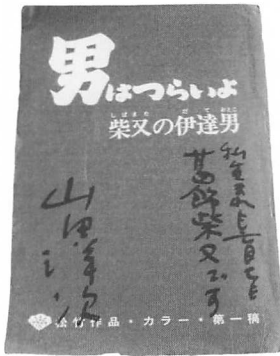 男はつらいよ
しばまた だておとこ
柴又の伊達男
私生まれも育ちも
葛飾柴又です
山田洋次
松竹作品・カラー・第一稿